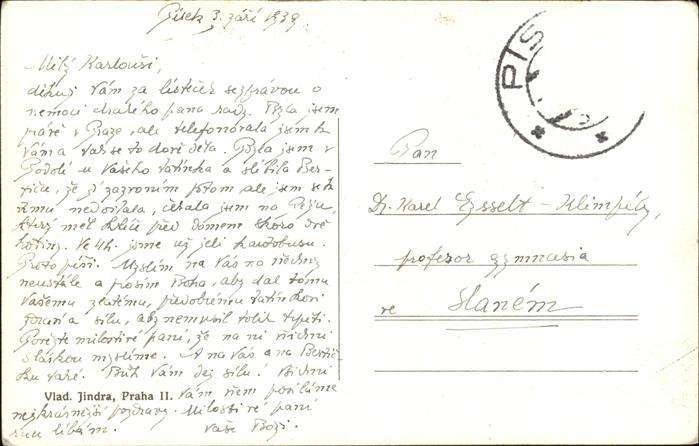 Písek 3. září 1939
Milý Karlouši,
děkuji Vám za lísteček se zprávou o
nemoci drahého pana rady. Byla jsem
v Praze, ale telefonovala jsem k
Vám a
Podolí u Vašeho tatínka a slíbila
že jí zazvoním potom ale jsem se k
tomu nedostala, čekala jsem na
který měl klíče před domem skoro dvě
hodiny. Ve 4h. jsme už jeli k autobusu.
Proto píši. Myslím na Vás na všechny
neustále a prosím Boha, aby dal tomu
Vašemu zlatému, předobrému tatínkovi
zdraví a sílu, aby nemusil tolik trpěti.
milostivé paní, že na ni všichni
s láskou myslíme. A na Vás a na
také. Bůh Vám dej sílu! Všichni
Vám všem posíláme
nejkrásnější pozdravy. Milostivé paní
ruku líbám. Vaše
Vlad. Jindra, Praha II.
PÍS
Pan
Dr. Karel Eysselt-Klimpély,
profesor gymnasia
ve Slaném